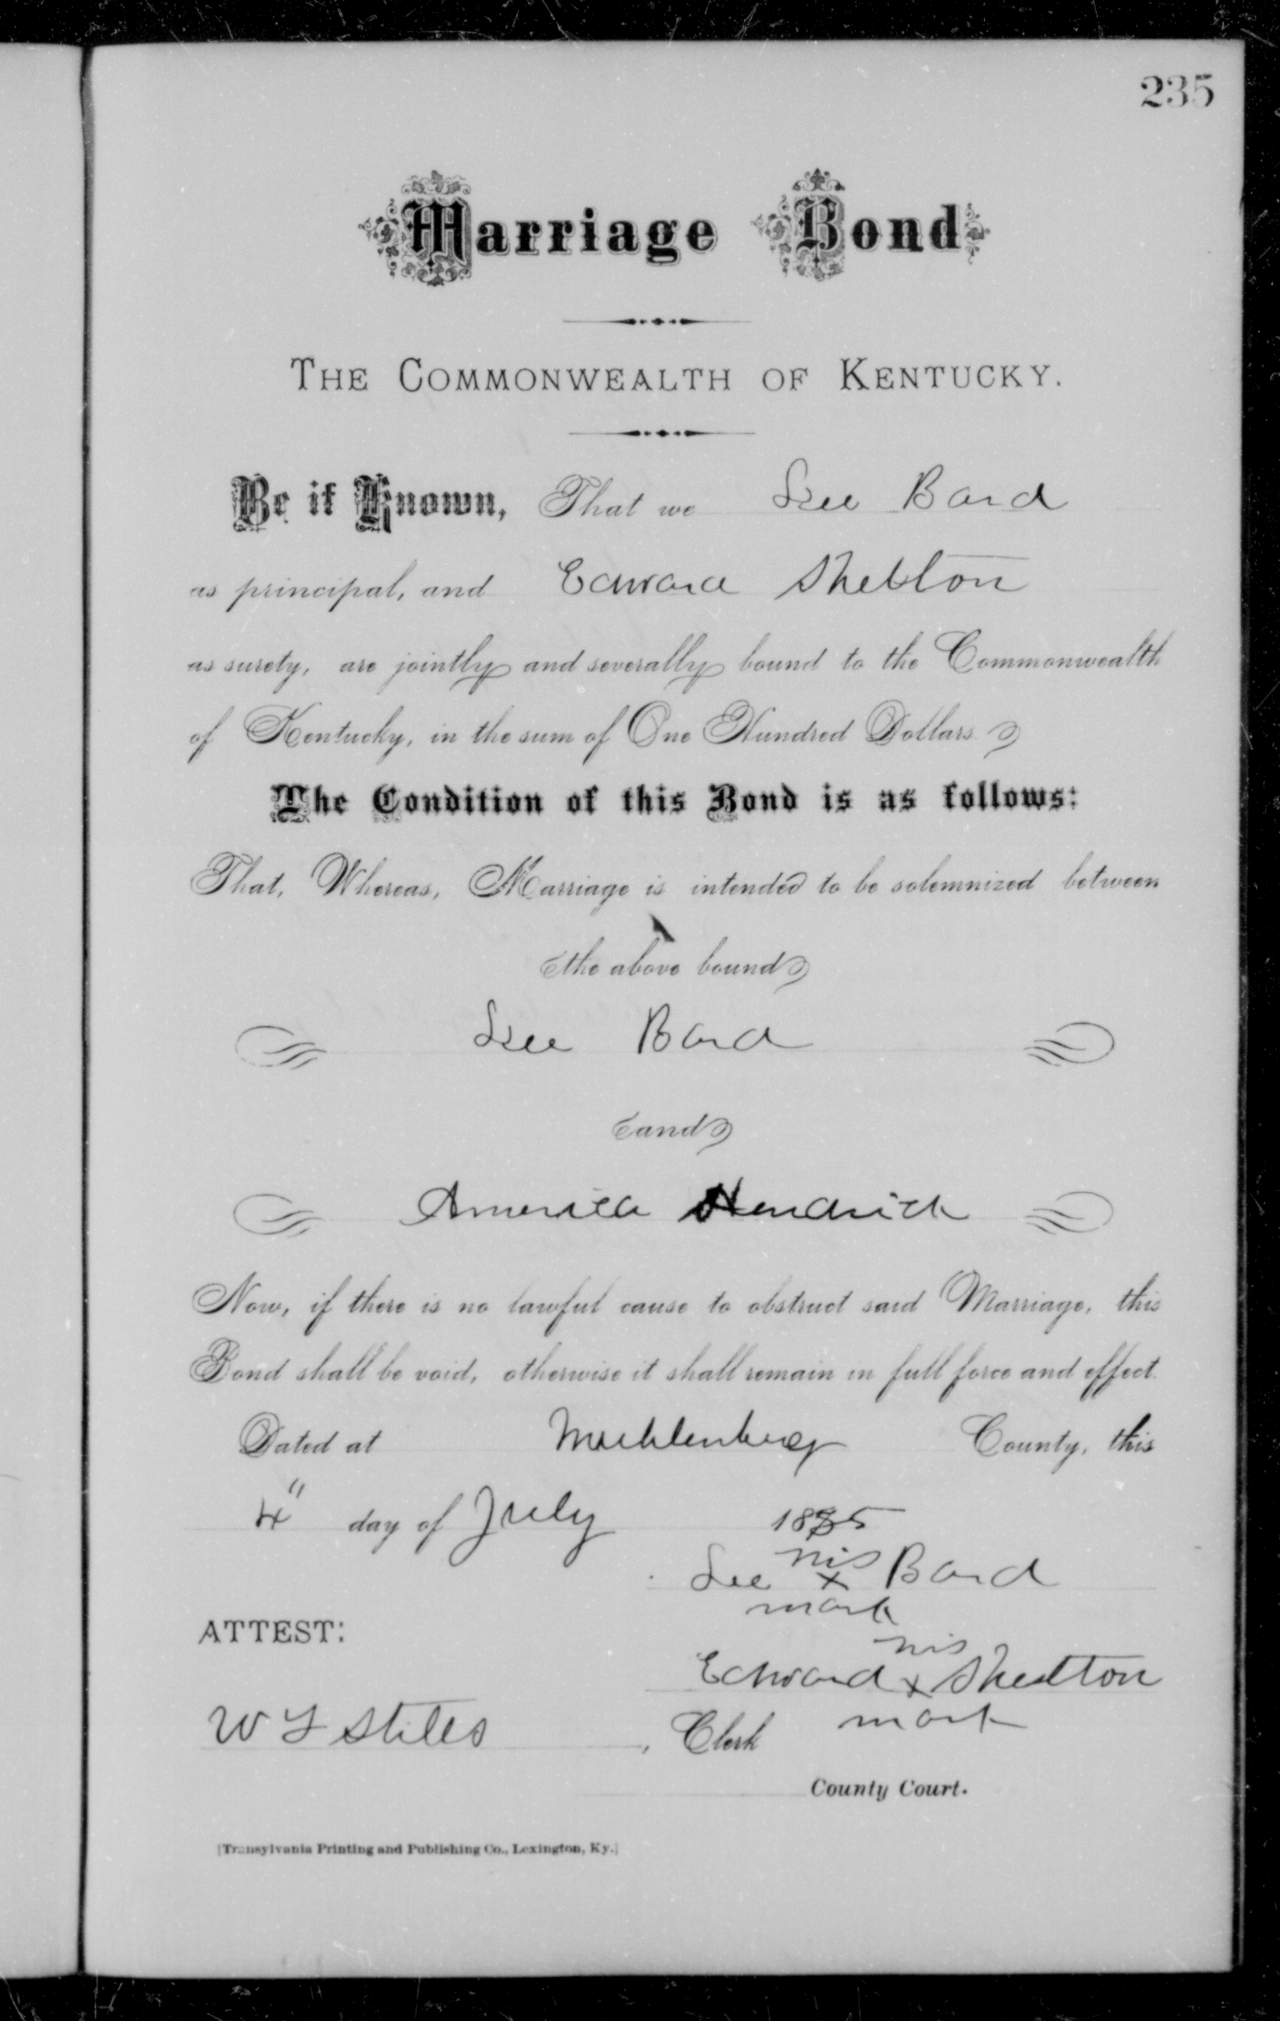 235
Marriage Bond
THE COMMONWEALTH OF KENTUCKY.
Be it Known, That we Lee Bard
as principal, and Edward Shelton
as surety, are jointly and severally bound to the Commonwealth
of Kentucky, in the sum of One Hundred Dollars.
The Condition of this Bond is as follows:
That, Whereas, Marriage is intended to be solemnized between
the above bound
Lee Bard
and
America Hendrick
Now, if there is no lawful cause to obstruct said Marriage, this
Bond shall be void, otherwise it shall remain in full force and effect.
Dated at Muhlenberg County, this
4" day of July 1885
his
Lee x Bard
mark
ATTEST:
his
Edward x Shelton
mark
W Y Stiles, Clerk
County Court.
[Transylvania Printing and Publishing Co., Lexington, Ky.]